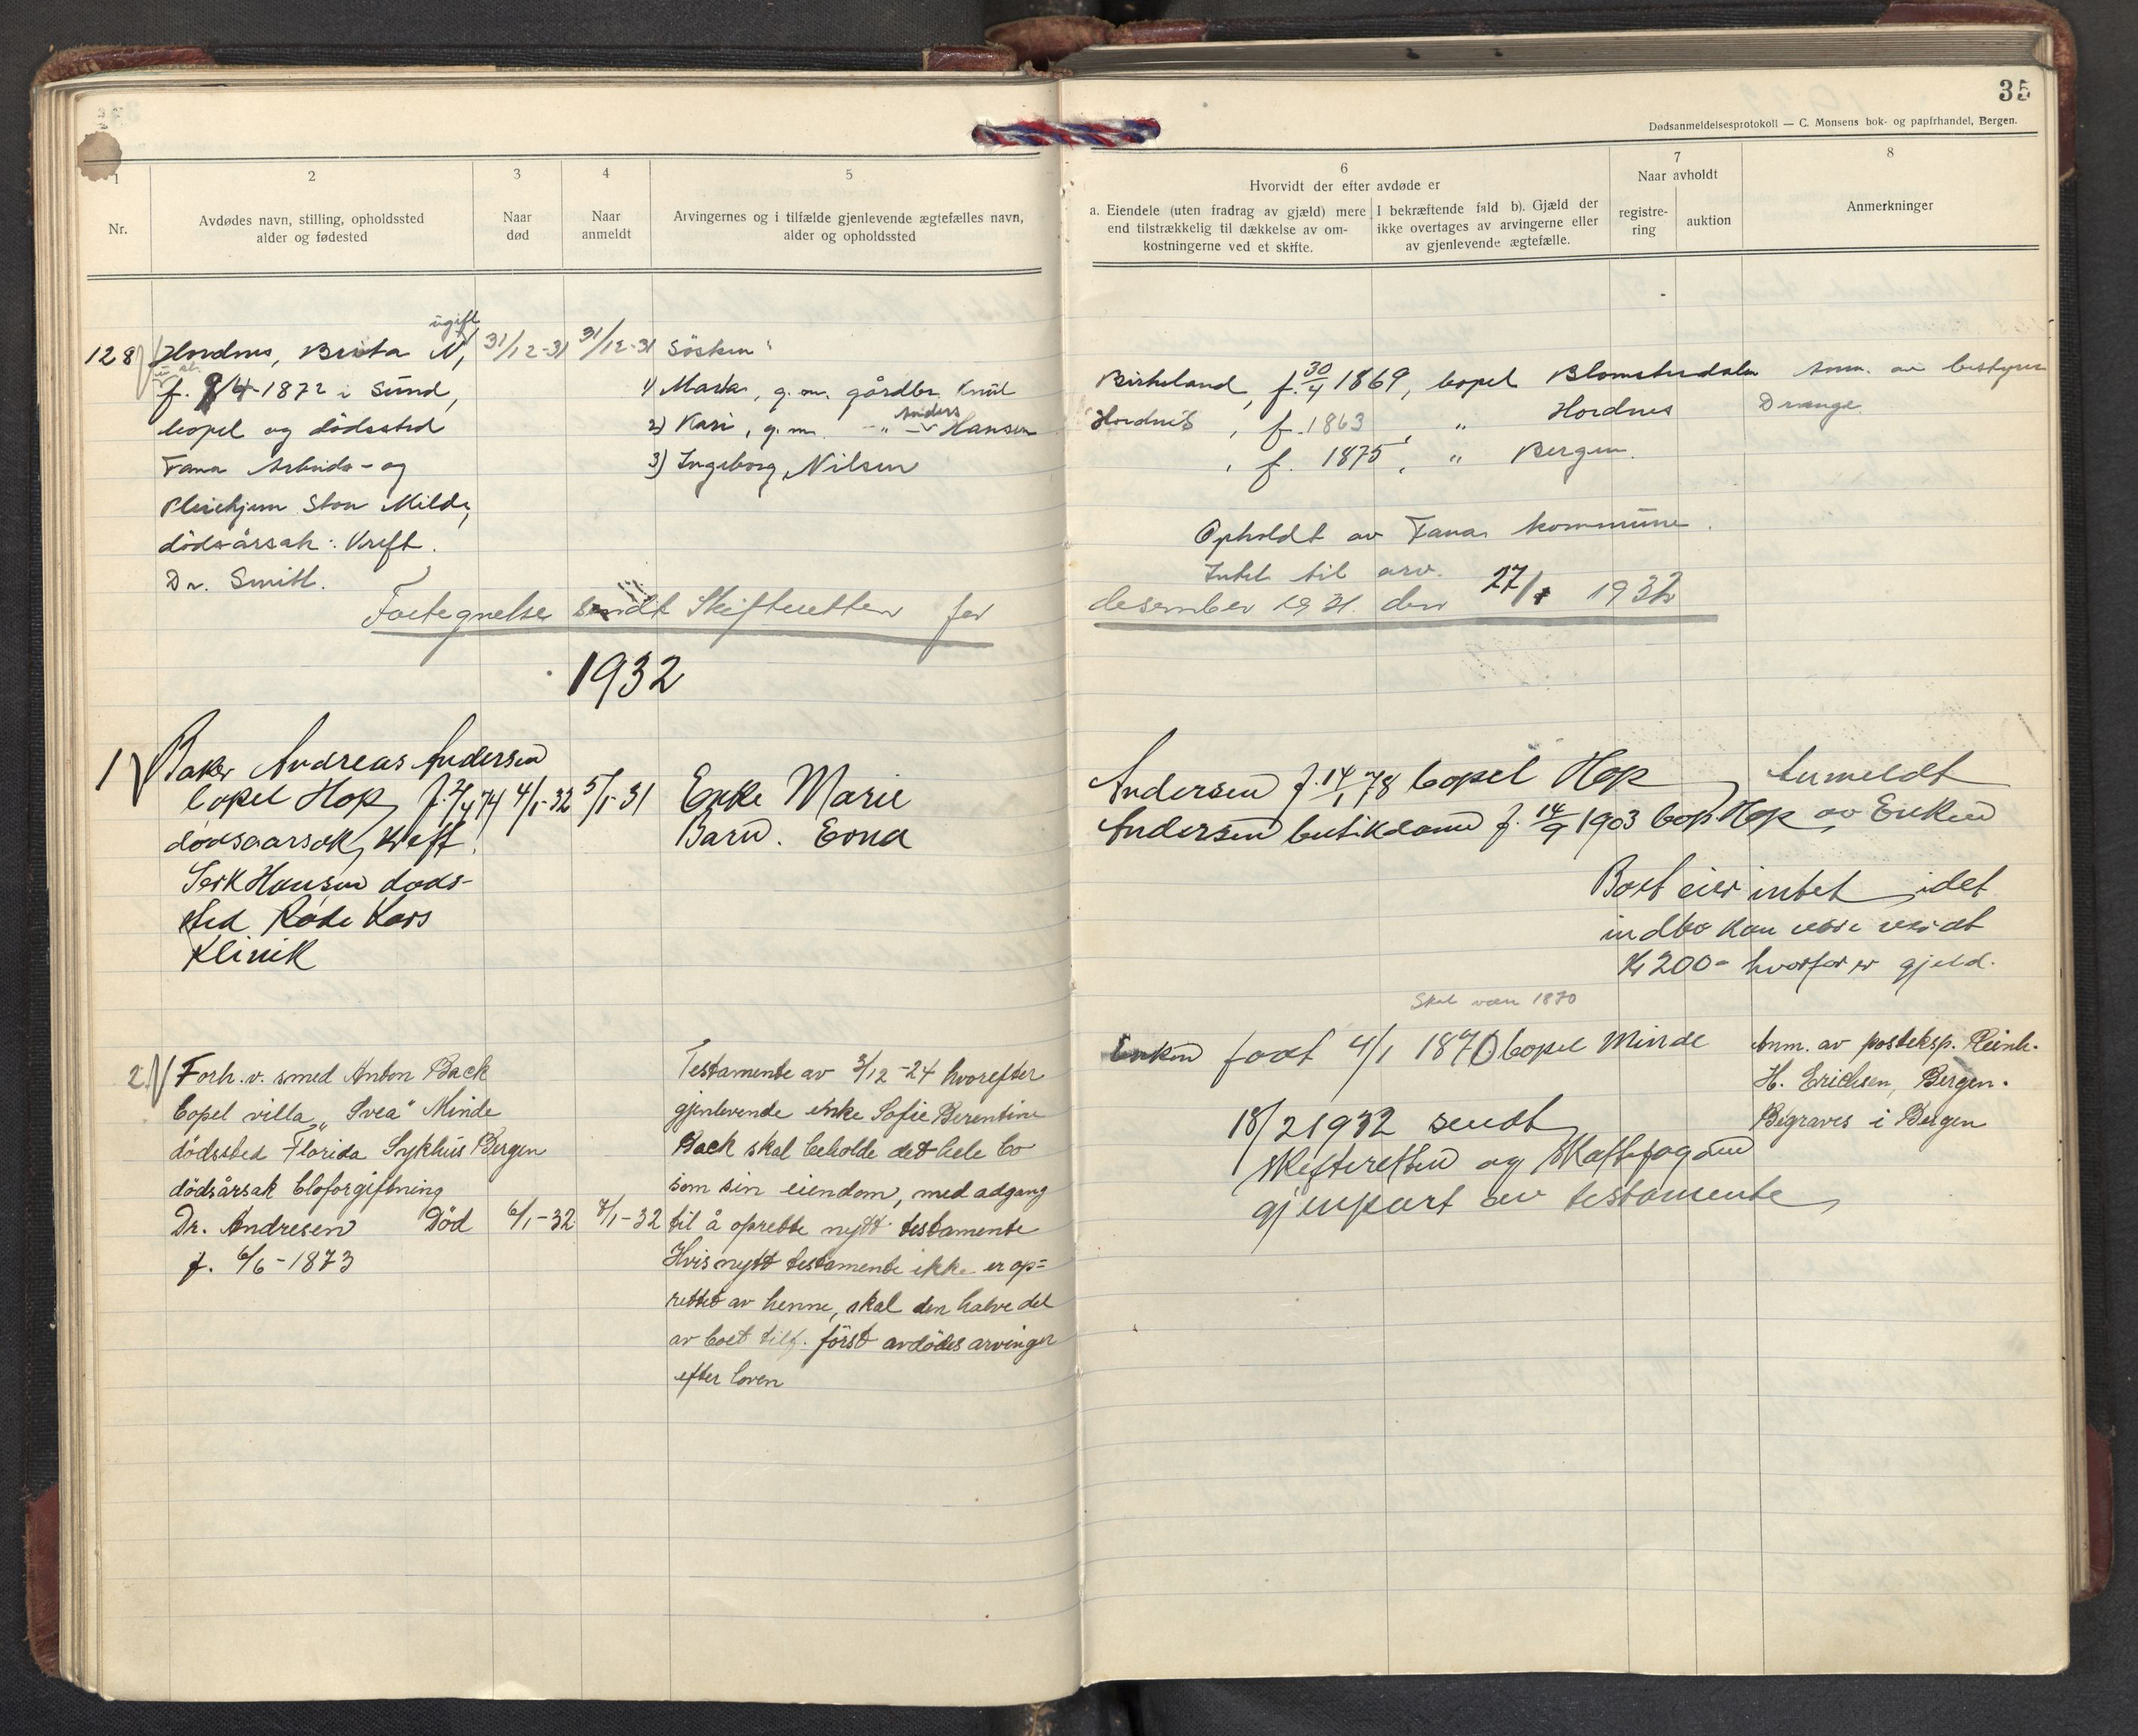 35
Dødsanmeldelsesprotokoll — C. Monsens bok- og papirhandel, Bergen.
1
Nr.
2
Avdødes navn, stilling, opholdssted
alder og fødested
3
Naar
død
4
Naar
anmeldt
5
Arvingernes og i tilfælde gjenlevende ægtefælles navn,
alder og opholdssted
6
Hvorvidt der efter avdøde er
a. Eiendele (uten fradrag av gjæld) mere
end tilstrækkelig til dækkelse av om-
kostningerne ved et skifte.
I bekræftende fald b). Gjæld der
ikke overtages av arvingerne eller
av gjenlevende ægtefælle.
7
Naar avholdt
registre-
ring
auktion
8
Anmerkninger
ugift
128 Hordnes, Brita N, 31/12-31 31/12-31 Søsken:
f. 4-1872 i Sund,
bopel og dødssted
Fana Arbeids- og
Pleiehjem Store Milde,
dødsårsak: Kreft.
Dr. Smitt.
1) Marta, g.m. gårdbr. Knut Birkeland, f. 30/4 1869, bopel Blomsterdalen Anm. av bestyrer
2) Kari, g.m. -"- Anders Hansen Hordnes, f. 1863, " Hordnes Drange
3) Ingeborg Nilsen, f. 1875, " Bergen.
Opholdt av Fana kommune.
Intet til arv.
Fortegnelse sendt Skifteretten for desember 1931. den 27/1 1932
1932
1) Baker Andreas Andersen
bopel Hop, f. 2/4 74 4/1-32 5/1-31 Enke Marie Andersen f. 14/1 78 bopel Hop Anmeldt
dødsaarsak, Kreft. Barn. Erna Andersen butikdame f. 14/9 1903 bop Hop av Enken
Serk Hansen døds-
sted Røde Kors
Klinik
Boet eier intet idet
indbo kan være verdt
Kr 200- hvorfor er gjeld.
Skal være 1870
2) Forh. v. smed Anton Back
bopel villa "Svea" Minde
dødssted Florida Sykhus Bergen
dødsårsak bloforgiftning
Dr. Andresen Død 6/1-32 7/1-32
f. 6/6-1873
Testamente av 3/12-24 hvorefter
gjenlevende enke Sofie Berentine
Back skal beholde det hele bo
som sin eiendom, med adgang
til å oprette nytt testamente
Hvis nytt testamente ikke er op=
rettet av henne, skal den halve del
av boet tilf. først avdødes arvinger
efter loven
Enken født 4/1 1870 bopel Minde
18/2 1932 sendt
Skifteretten og Skattefogden
gjenpart av testamente
Anm. av posteksp. Reinh.
H. Erichsen, Bergen.
Begraves i Bergen